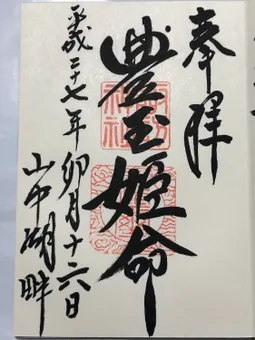 奉拝
豊玉姫命
平成二十七年卯月十六日
山中湖畔